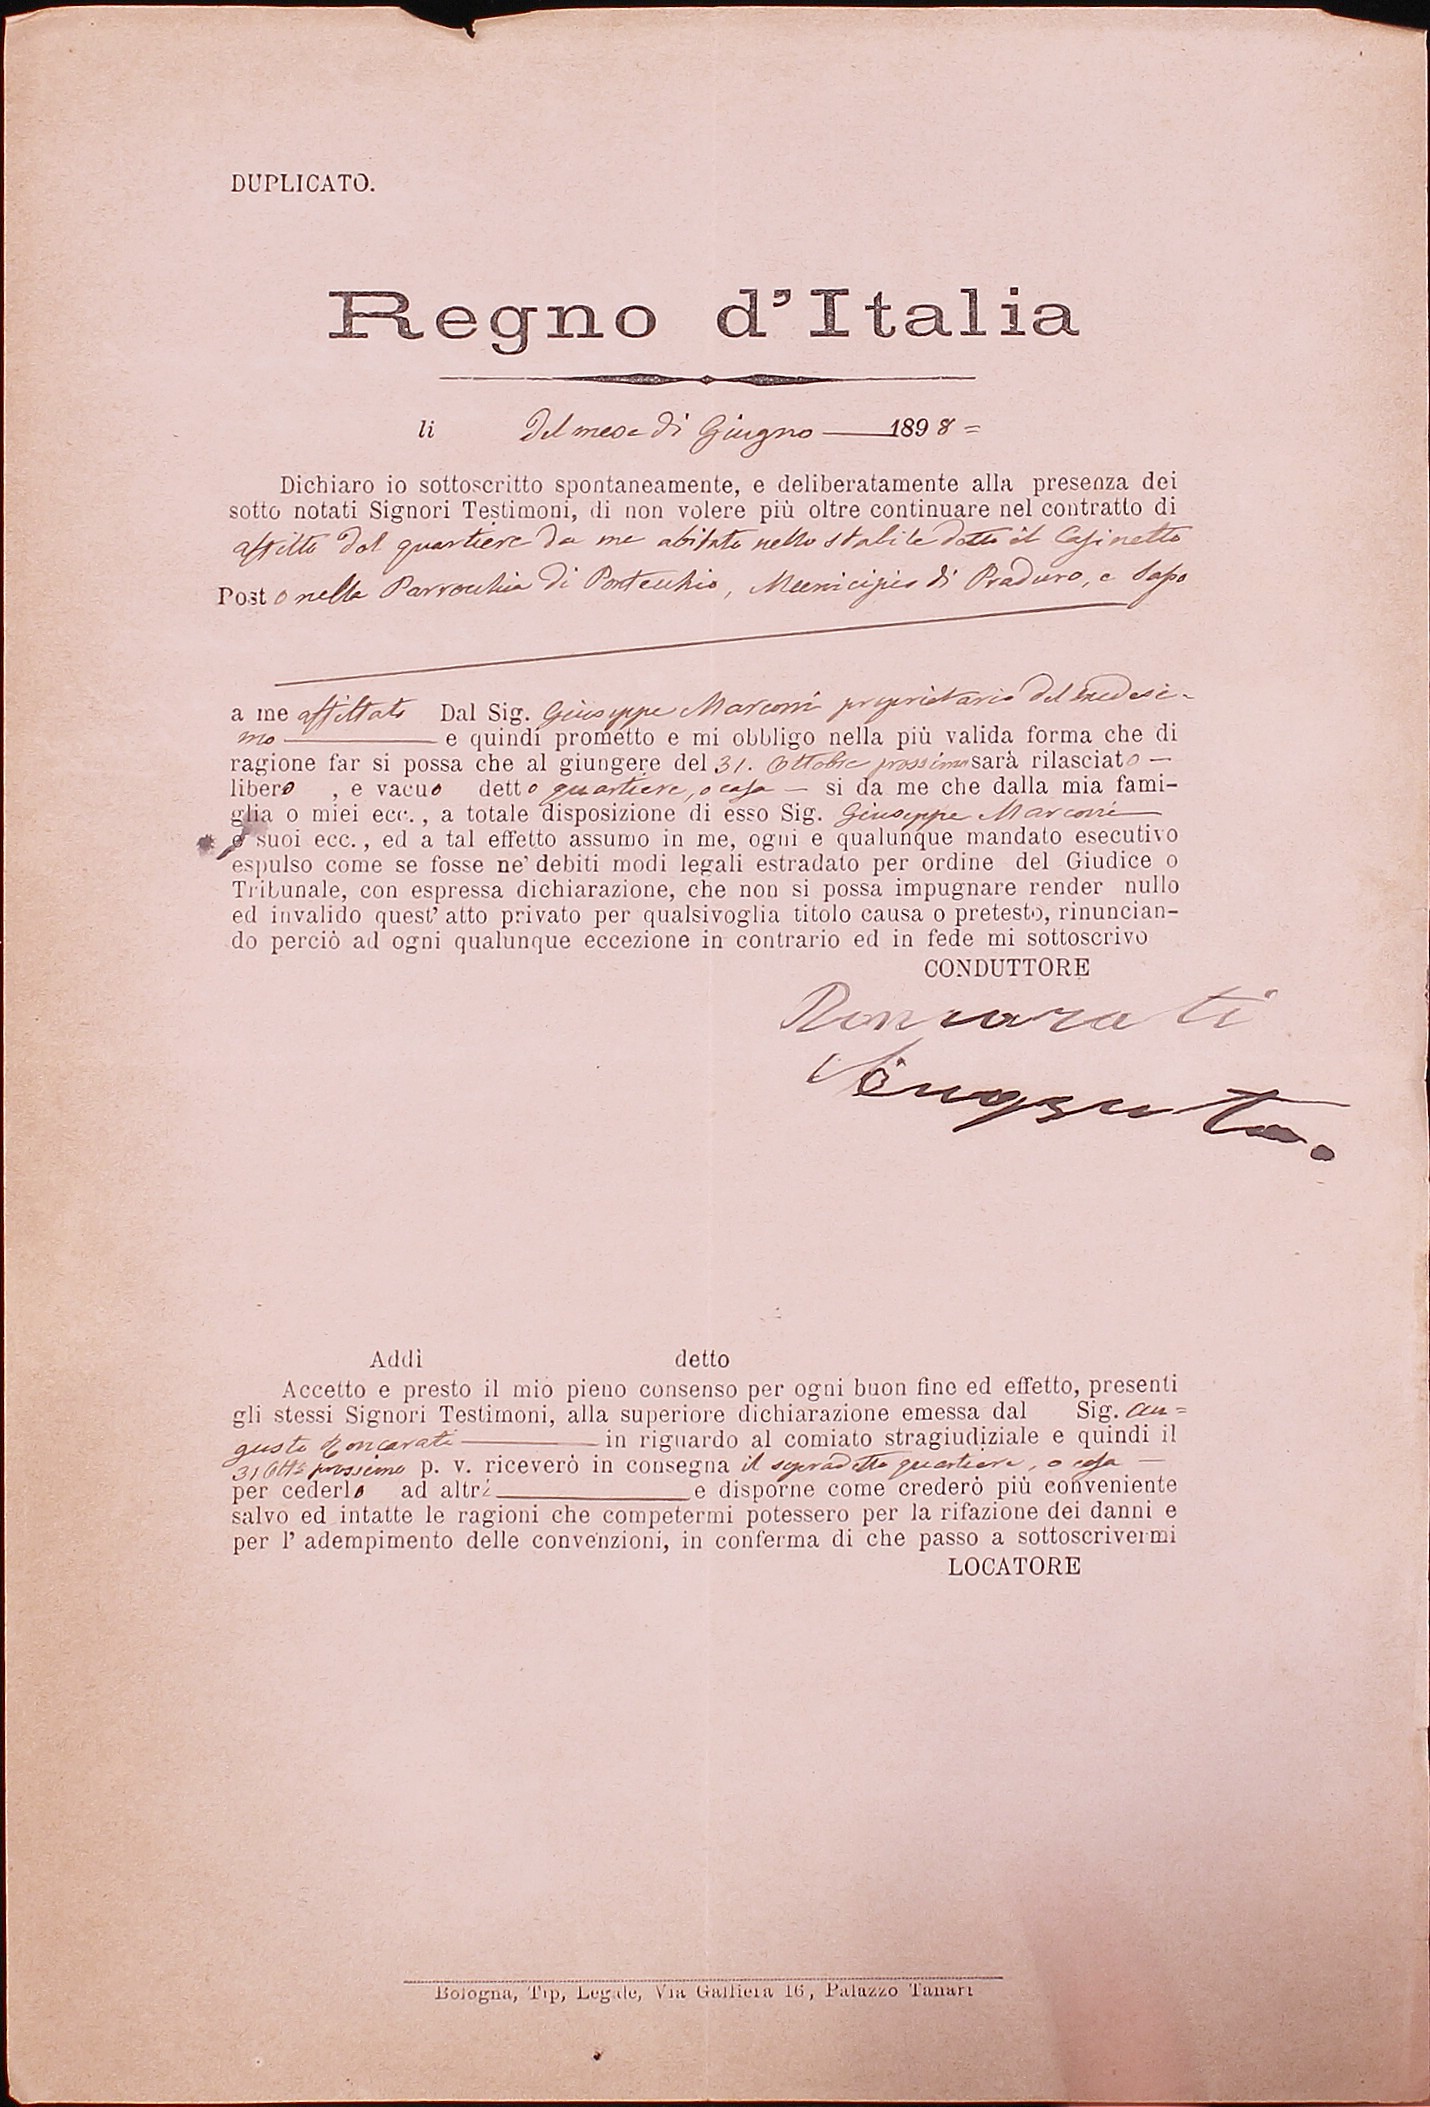 DUPLICATO.
Regno d'Italia
li Del mese di Giugno 1898 =
Dichiaro io sottoscritto spontaneamente, e deliberatamente alla presenza dei
sotto notati Signori Testimoni, di non volere più oltre continuare nel contratto di
affitto del quartiere da me abitato nello stabile detto il Casinetto
Posto nella Parrocchia di Pontecchio, Municipio di Praduro, e Sasso
a me affittato Dal Sig. Giuseppe Marconi proprietario del medesi-
mo e quindi prometto e mi obbligo nella più valida forma che di
ragione far si possa che al giungere del 31. Ottobre prossimo sarà rilasciato —
libero , e vacuo detto quartiere, o casa — si da me che dalla mia fami-
glia o miei ecc., a totale disposizione di esso Sig. Giuseppe Marconi
o suoi ecc., ed a tal effetto assumo in me, ogni e qualunque mandato esecutivo
espulso come se fosse ne' debiti modi legali estradato per ordine del Giudice o
Tribunale, con espressa dichiarazione, che non si possa impugnare render nullo
ed invalido quest' atto privato per qualsivoglia titolo causa o pretesto, rinuncian-
do perciò ad ogni qualunque eccezione in contrario ed in fede mi sottoscrivo
CONDUTTORE
Roncarati
Addì detto
Accetto e presto il mio pieno consenso per ogni buon fine ed effetto, presenti
gli stessi Signori Testimoni, alla superiore dichiarazione emessa dal Sig. Au=
gusto Roncarati in riguardo al comiato stragiudiziale e quindi il
31 Ott. prossimo p. v. riceverò in consegna il sopradetto quartiere, o casa —
per cederlo ad altri e disporne come crederò più conveniente
salvo ed intatte le ragioni che competermi potessero per la rifazione dei danni e
per l' adempimento delle convenzioni, in conferma di che passo a sottoscrivermi
LOCATORE
Bologna, Tip, Legale, Via Galliera 16, Palazzo Tanari